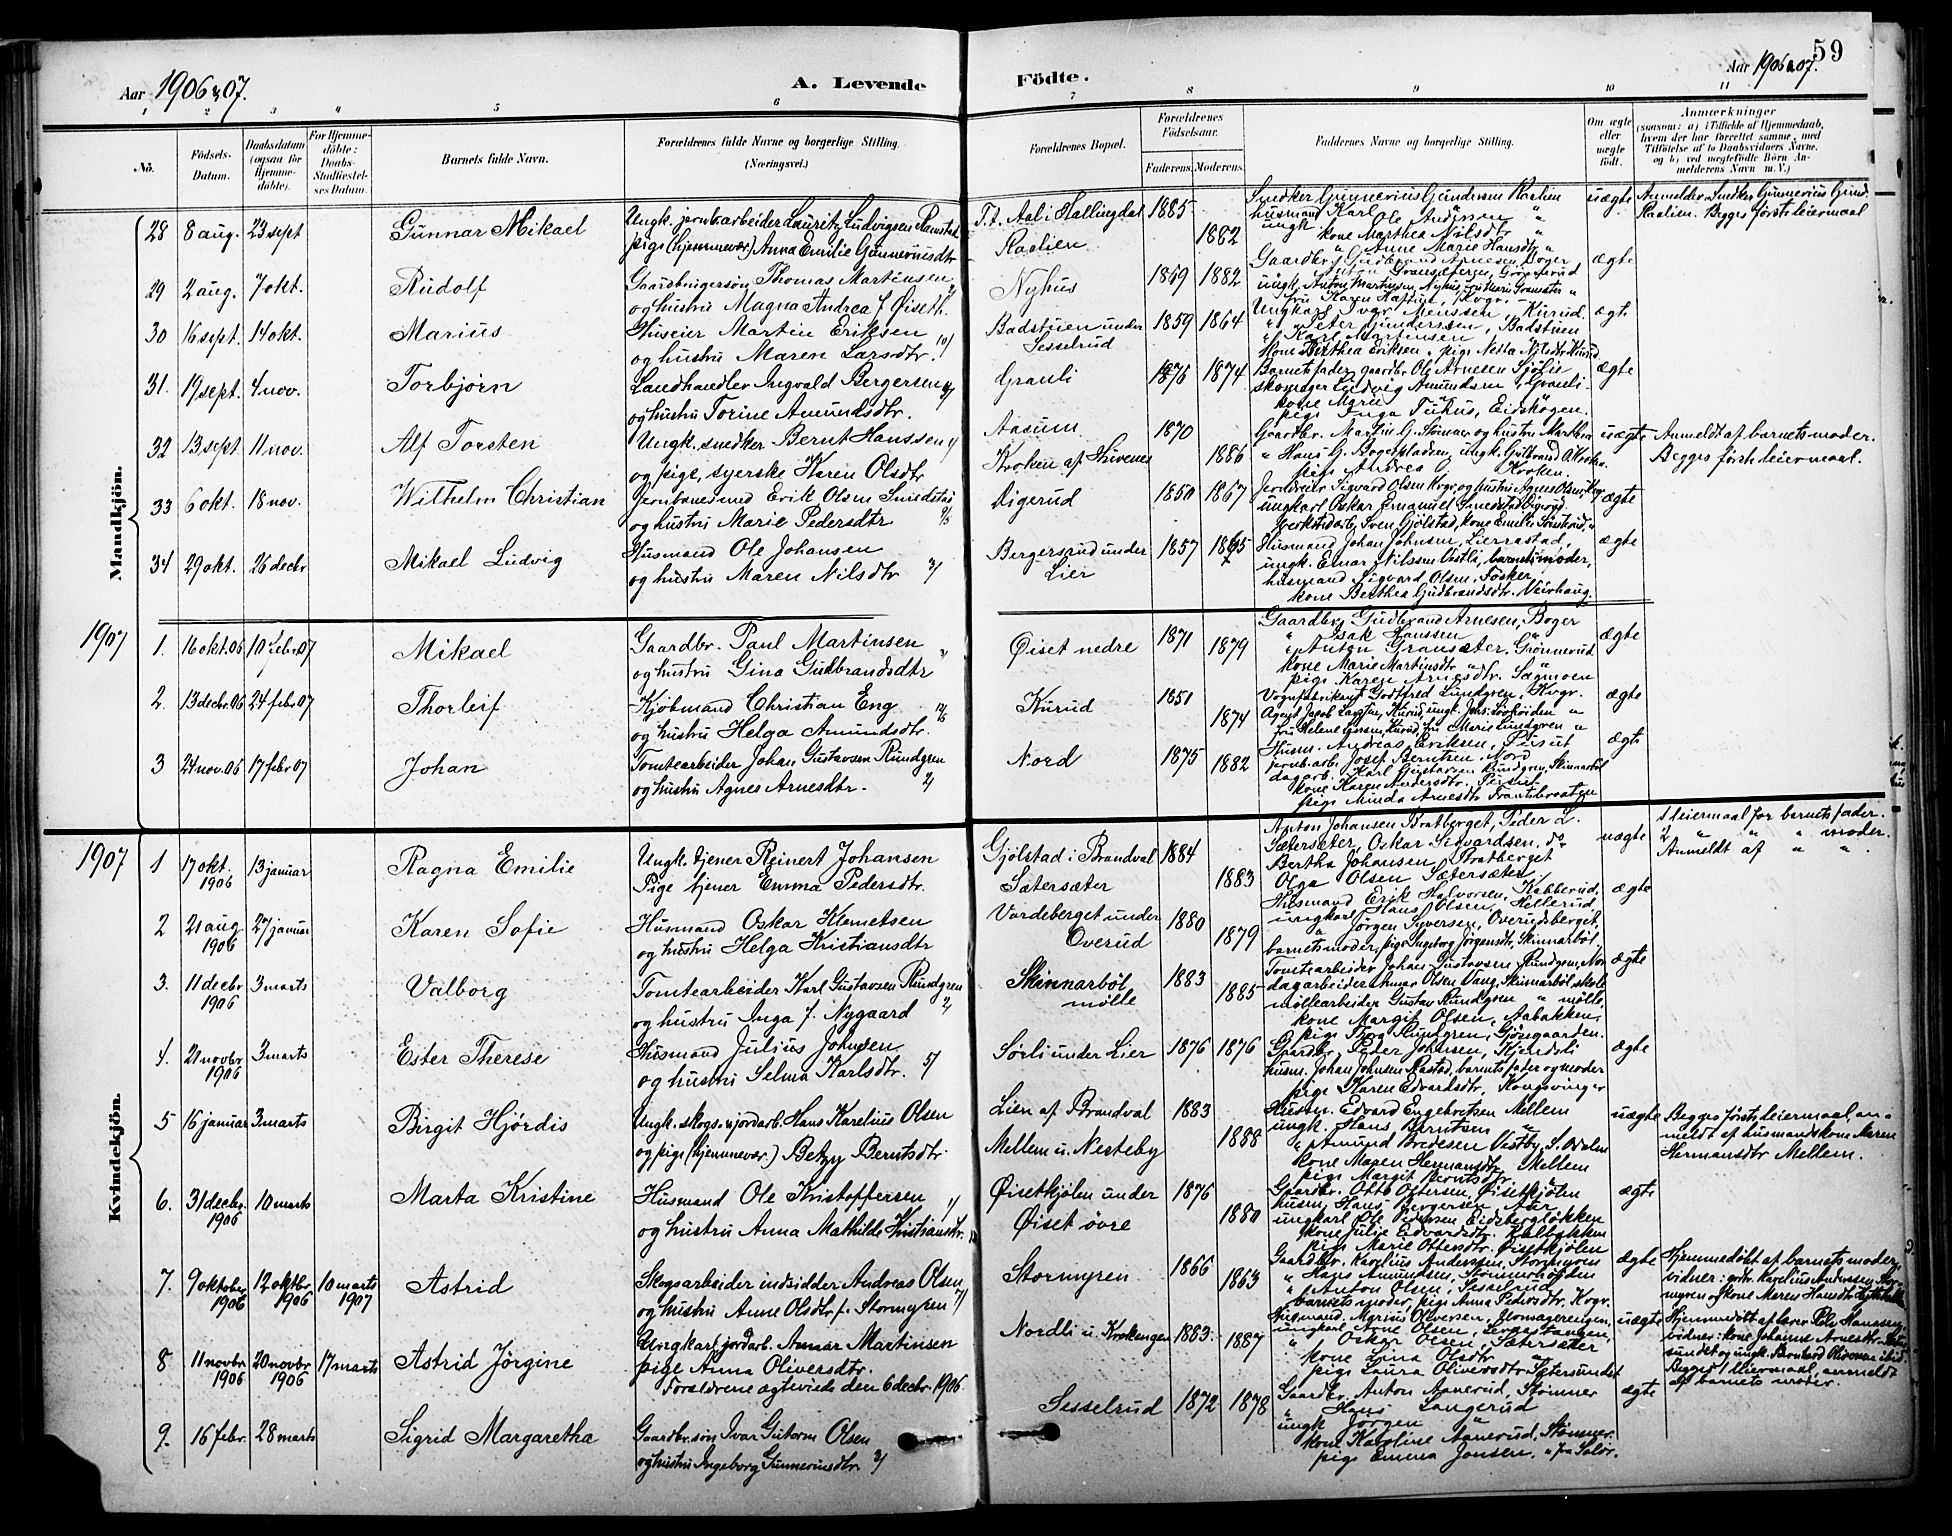 59
Aar 1906 & 07.
A. Levende Födte.
Aar 1906 & 07.
1 2 3 4 5 6 7 8 9 10 11
No.
Födsels-Datum.
Daabsdatum (ogsaa for Hjemmedöbte).
For Hjemmedöbte: Daabs-Stadfæstelses Datum.
Barnets fulde Navn.
Forældrenes fulde Navne og borgerlige Stilling. (Næringsvei.)
Forældrenes Bopæl.
Forældrenes Födselsaar.
Faderens. Moderens.
Faddernes Navne og borgerlige Stilling.
Om ægte eller uægte födt.
Anmærkninger
(saasom: a) i Tilfælde af Hjemmedaab, hvem der har forrettet samme, med Tilföielse af to Daabsvidners Navne, og b) ved uægtefödte Börn Anmelderens Navn m. V.)
Mandkjön.
28 8 aug. 23 sept Gunnar Mikael
Ungk. jernb.arbeider Lauritz Ludvigsen Ramstad
pige (hjemmevær.) Anna Emilie Gunneriusdtr
T.t. Aal i Hallingdal 1885
Raalien 1882
Snedker Gunnerius Gundersen Raalien
husmand Karl
ungk Ole Andersen
kone Marthea Nilsdtr
" Anne Marie Hansdtr "
uægte
Anmelder Snedker Gunnerius Gund.
Raalien. Begges första leiermaal
29 2 aug. 7 okt. Rudolf
Gaardbrugersøn Thomas Martinsen
og hustru Magna Andrea f Øiseth.
Nyhus 1859 1882
Gaardbr. Gudbrand Arnesen, Boger
" Anton Gransæteren, Grønnerud
ungk. Anton Martinsen, Nyhus
ægte
30 16 sept. 14 okt. Marius
Huseier Martin Eriksen
og hustru Maren Larsdtr. 10/
Badstuen under Sesselrud 1859 1864
Ungkarl Ivar Monssen, Kurud.
" Peter Gundersen, Badstuen
" Karl Mortensen
kone Berthea Eriksen
ægt.
31. 19 sept. 4 nov. Torbjørn
Landhandler Ingvald Bergersen
og hustru Torine Amundsdtr.
Granli 1875 1874
Barnets fader, gaardbr. Ole Arnesen Sjölie
skomager Ludvig Amundsen, Granli
kone Marie
pige Inga Tuhus, Eidskogen.
ægte
32 13 sept 11 nov. Alf Torsten
Ungk. snedker Bernt Hanssen 1/
og pige, syerske Karen Olsdtr
Aasum 1870
Kroken af Huvenes 1886
Gaardbr. Martin G. Stömner og hustru Marthea
pige Andrea Kroken.
uægte
Anmeldt af barnets moder.
Begges förste leiermaal.
33 6 okt. 18 nov. Wilhelm Christian
Jernbanesmed Erik Olsen Smedstad
og hustru Marie Pedersdtr 9/5
Digerud 1850 1867
Jerndreier Sigvard Olsen Kvgr. og hustru Agnes Olsen Kvgr
ungkarl Oskar Emanuel Smedstad Digerud.
Verkstedarb. Sven Gjölstad, kone Emelie Sönsterud, "
ægte
34 29 okt. 26 decbr Mikael Ludvig
Husmand Ole Johansen
og hustru Maren Nilsdtr 3/
Bergersrud under Lier 1857 1865
Husmand Johan Johnsen, Lierrastad,
ungk. Einar Nilssen Vestli, barnets moder,
husmand Sigvard Olsen, Fösker
kone Berthea Gudbrandsdtr. Veirhaug.
ægte
1907
1. 16 okt. 06 10 febr 07 Mikael
Gaardbr. Paul Martinsen
og hustru Gina Gudbrandsdtr
Øiset nedre 1871 1879
Gaardbr. Gudbrand Arnesen, Boger
" Isak Hanssen "
" Anton Gransæter. Grönnerud
kone Marie Martinsdtr " "
pige Karen Arnesdtr. Sagmoen
ægte
2. 13 decbr. 06 24 febr 07 Thorleif
Kjöbmand Christian Eng
og hustru Helga Amundsdtr.
Kurud 1851 1874
Vognfabrikant Godtfred Lundgren, Kvgr.
Agent Jacob Larsen, Kurud
fru Helene Larsen, Kurud, fru Marie Lundgren "
ægte
3 24 nov. 06 17 febr 07 Johan
Tomtearbeider Johan Gustavsen Rundgren
og hustru Agnes Arnesdtr. 2/
Nord 1875 1882
Husm. Andreas Eriksen, Pirsut
jernb.arb. Josef Berntsen, Nord
dagarb. Karl Gustavsen Rundgren, Skinnarböl
kone Karen Andersdtr. Pirsut
pige Minda Arnesdtr Frantsbraaten
ægte
Kvindekjön.
1907
1 17 okt. 1906 13 januar Ragna Emilie
Ungk. tjener Reinert Johansen
Pige tjener Emma Pedersdtr.
Gjölstad i Brandval 1884
Sætersæter 1883
Anton Johansen Bratberget, Peder L.
Sætersæter, Oskar Sigvardsen, do
Bertha Johansen Bratberget
Olga Olsen Sætersæter
uægte
1 leiermaal for barnets fader.
2 " " " moder.
Anmeldt af " "
2 21 aug 1906 27 januar Karen Sofie
Husmand Oskar Klemetsen
og hustru Helga Kristiansdtr
Vardeberget under Overud 1880 1879
Husmand Erik Halvorsen, Kabberud,
ungkarl Hans Olsen, Hellerud,
" Jørgen Syversen, Overudsberget,
barnets moder, pige Ingeborg Jørgensdtr, Skinnarböl
ægte
3. 11 decbr 1906 3 marts Valborg
Tomtearbeider Karl Gustavsen Rundgren
og hustru Inga f. Nygaard 2/
Skinnarböl mölle 1883 1885
Tomtearbeider Johan Gustavsen Rundgren, Nor
dagarbeider Annar Olsen Vang, Skinnarböl skole
möllearbeider Gustav Rundgren " mölle,
kone Margit Olsen, Aabakken,
pige Thora Rundgren, Gjövgaarden.
ægte
4. 21 novbr 1906 3 marts Ester Therese
Husmand Julius Johnsen
og hustru Selma Karlsdtr. 5/
Sörli under Lier 1876 1876
Gaardbr. Peder Johnsen, Kjendsli
husm. Johan Johnsen Rastad, barnets fader og moder
pige Karen Edvardsdtr, Kongsvinger
ægte
5 16 januar 3 marts Birgit Hjördis
Ungk. skogs. & jordarb. Hans Karelius Olsen
og pige (hjemmevær.) Betzy Berntsdtr.
Lien af Brandval 1883
Mellem u. Nesteby 1888
Husm. Edvard Engebretsen Mellem
ungk. Hans Berntsen "
" Amund Bredesen Vestby, S. Odalen
kone Maren Hermansdtr. Mellem
pige Margit Berntsdtr "
uægte
Begges förste leiermaal, anmeldt af husmandskone Maren
Hermansdtr Mellem.
6. 31 decbr. 1906 10 marts Marta Kristine
Husmand Ole Kristoffersen 1/
og hustru Anna Mathilde Kristiansdtr.
Øisetkjölen under Øiset övre 1876 1880
Gaardbr. Otto Ottersen, Øisetkjölen
husm. Hans Bergersen Aar
ungkarl Ole Pedersen Eidsberglökken
kone Julie Edvardsdtr. Kalbakken
pige Marie Ottersdtr. Øisetkjölen
ægte
7. 9 oktober 1906 12 oktbr. 1906 10 marts 1907 Astrid
Skogsarbeider indsidder Andreas Olsen
og hustru Anne Olsdtr f. Stormyren 7/
Stormyren 1866 1863
Gaardbr. Karelius Andersen, Stormyren
" Hans Amundsen, Stömnerhöiden
" Anton Olsen, Sesselrud
barnets moder, pige Anna Pedersdtr. Kvgr.
ægte
Hjemmedöbt af barnets moder,
vidner: gbr. Karelius Andersen Stormyren og kone Maren Hansdtr
8 11 novbr 1906 20 novbr 1906 17 marts Astrid Jörgine
Ungkarl, jordarb. Annar Martinsen
pige Anna Oliversdtr.
Forældrene ægteviede den 6 decbr. 1906.
Nordli u. Krokengen 1883. 1887
Husmand, Marius Oliversen, Blomagerengen,
ungkarl Arne Olsen, Lerbestangen,
" Oskar Olsen Sætersæter
kone Lina Olsdtr "
pige Laura Oliversdtr. Sætersundet
uægte
Hjemmedöbt af lærer Pole Hanssen,
vidner: kone Johanne Arnesdtr. Sætersundet og ungk. Bernhard Oliversen ibid.
Begges 1 leiermaal, anmeldt
af barnets moder.
9. 16 febr. 28 marts Sigrid Margaretha
Gaardbr. søn Ivar Gutorm Olsen
og hustru Ingeborg Gunneriusdtr. 2/
Sesselrud 1872 1878
Gaardbr. Anton Aanerud, Stömner
" Hans Langerud
ungk. Jörgen "
kone Karoline Aanerud, Stömner.
pige Emma Jonsen, " fra Solör.
ægte